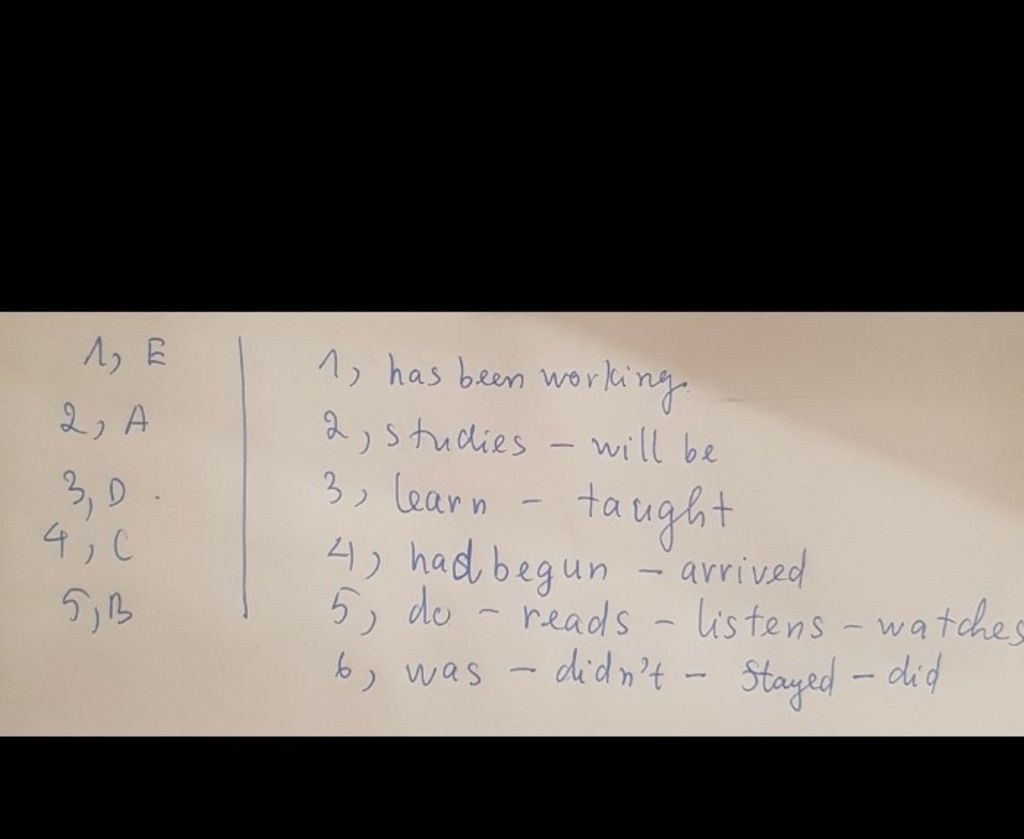 1, E
2, A
3, D .
4, C
5, B
1, has been working.
2, studies - will be
3, learn - taught
4, had begun - arrived
5, do - reads - listens - watches
6, was - didn't - stayed - did